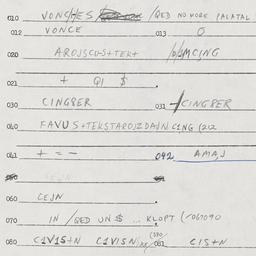 010 VONCHES / /QED NO MORE PALATAL
012 VONCE 013 0
020 AROJSCUS+TEKT
021 + QI $
030 CINGBER 031 CINGBER
040 FAVUS+TEKSTAROJZDAJN CING (212
041 + = - 042 AMAJ
060 CEJN
070 IN /QED UN $ ... KLOPT (/061090
080 C1V15+N C1V15N 081 C15+N